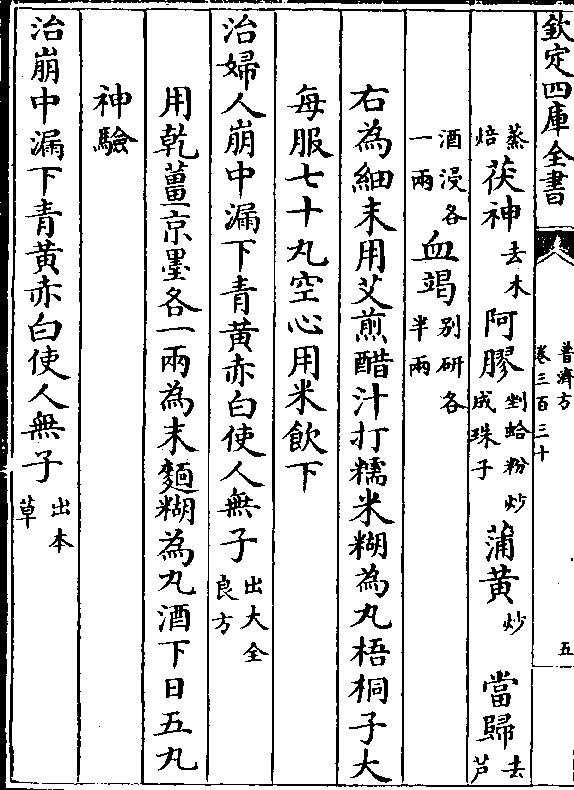 欽定四庫全書
普濟方
卷三百三十
五
蒸焙茯神去木阿膠剉蛤粉炒成珠子蒲黃炒當歸去芦
酒浸各一兩血竭别研各半兩
右為細末用艾煎醋汁打糯米糊為丸梧桐子大
每服七十丸空心用米飲下
治婦人崩中漏下青黄赤白使人無子出大全良方
用乾薑京墨各一兩為末麵糊為丸酒下日五丸
神驗
治崩中漏下青黄赤白使人無子出本草